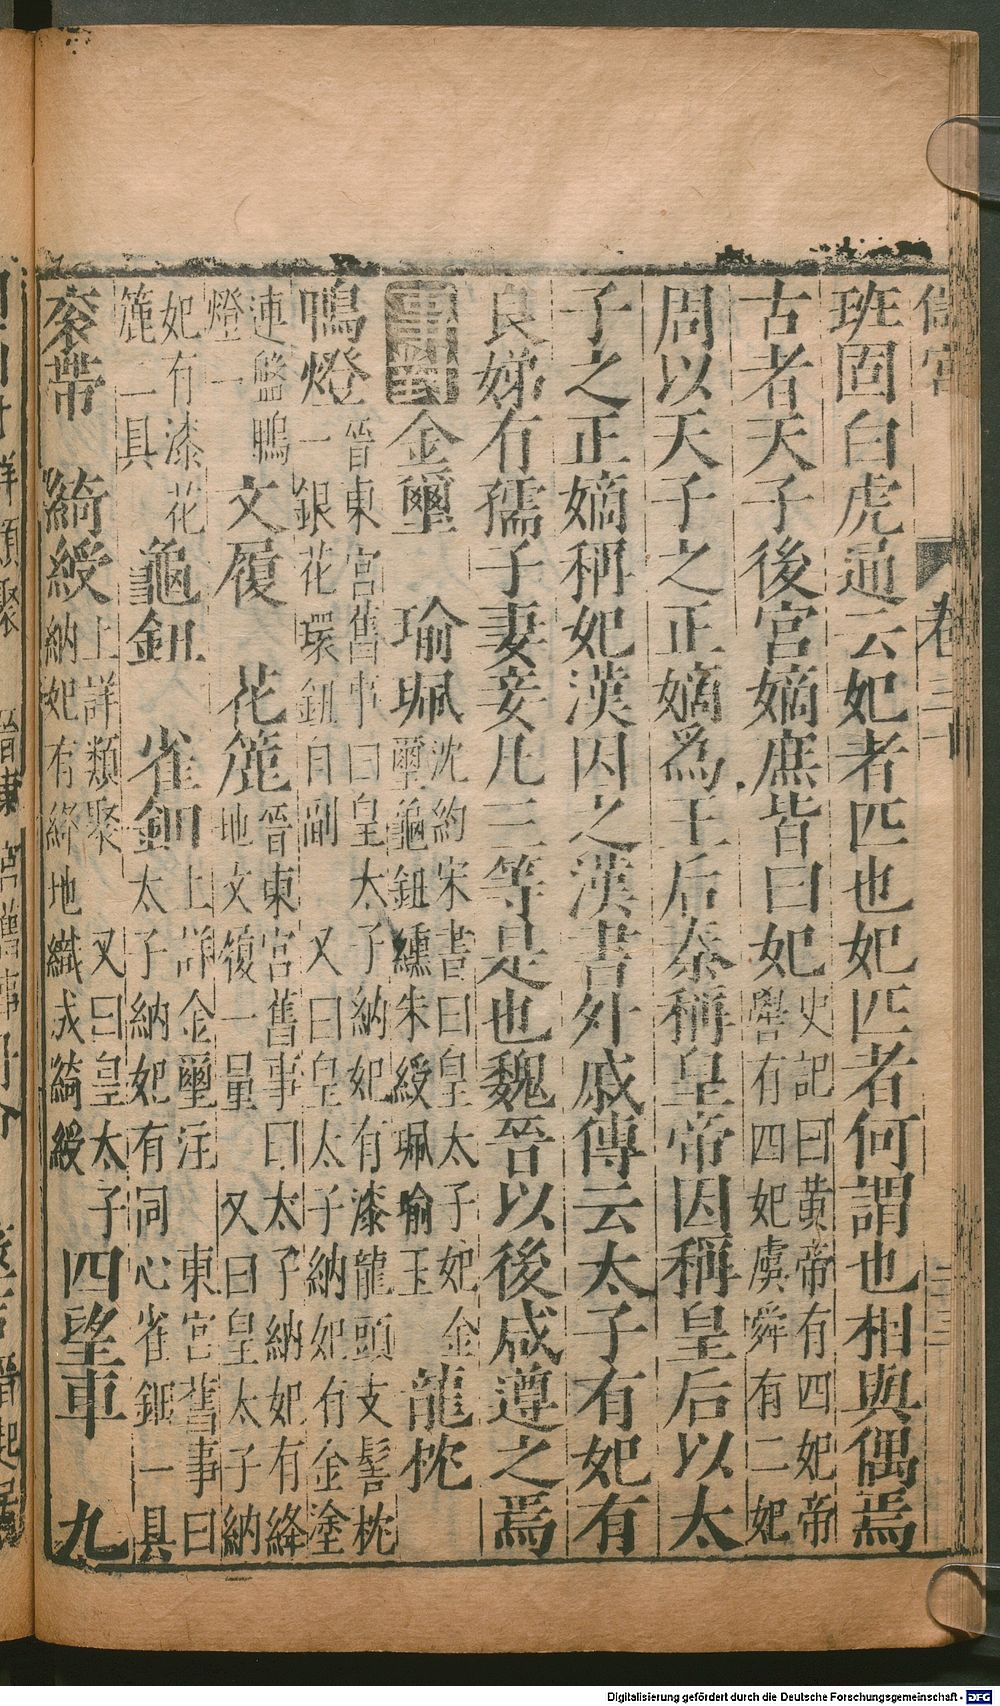 儲宮 卷三十
班固白虎通云妃者匹也妃匹者何謂也相與偶焉
古者天子後宮嫡庶皆曰妃
史記曰黄帝有四妃帝
嚳有四妃虞舜有二妃
周以天子之正嫡爲王后秦稱皇帝因稱皇后以太
子之正嫡稱妃漢因之漢書外戚傳云太子有妃有
良娣有孺子妻妾凡三等是也魏晉以後咸遵之焉
事對 金璽 瑜珮
沈約宋書曰皇太子妃金
璽龜鈕纁朱綬珮瑜玉
龍枕
鴨燈
晉東宮舊事曰皇太子納妃有漆龍頭支髻枕
一銀花環鈕自副 又曰皇太子納妃有金塗
連盤鴨
燈一
文履 花簏
晉東宮舊事曰太子納妃有絳
地文履一量 又曰皇太子納
妃有漆花
簏一具
龜鈕 雀鈿
上詳金璽注 東宮舊事曰
太子納妃有同心雀鈿一具
衮帶 綺綬
上詳類聚 又曰皇太子
納妃有絳地織成綺綬
四望車 九
Digitalisierung gefördert durch die Deutsche Forschungsgemeinschaft - DFG